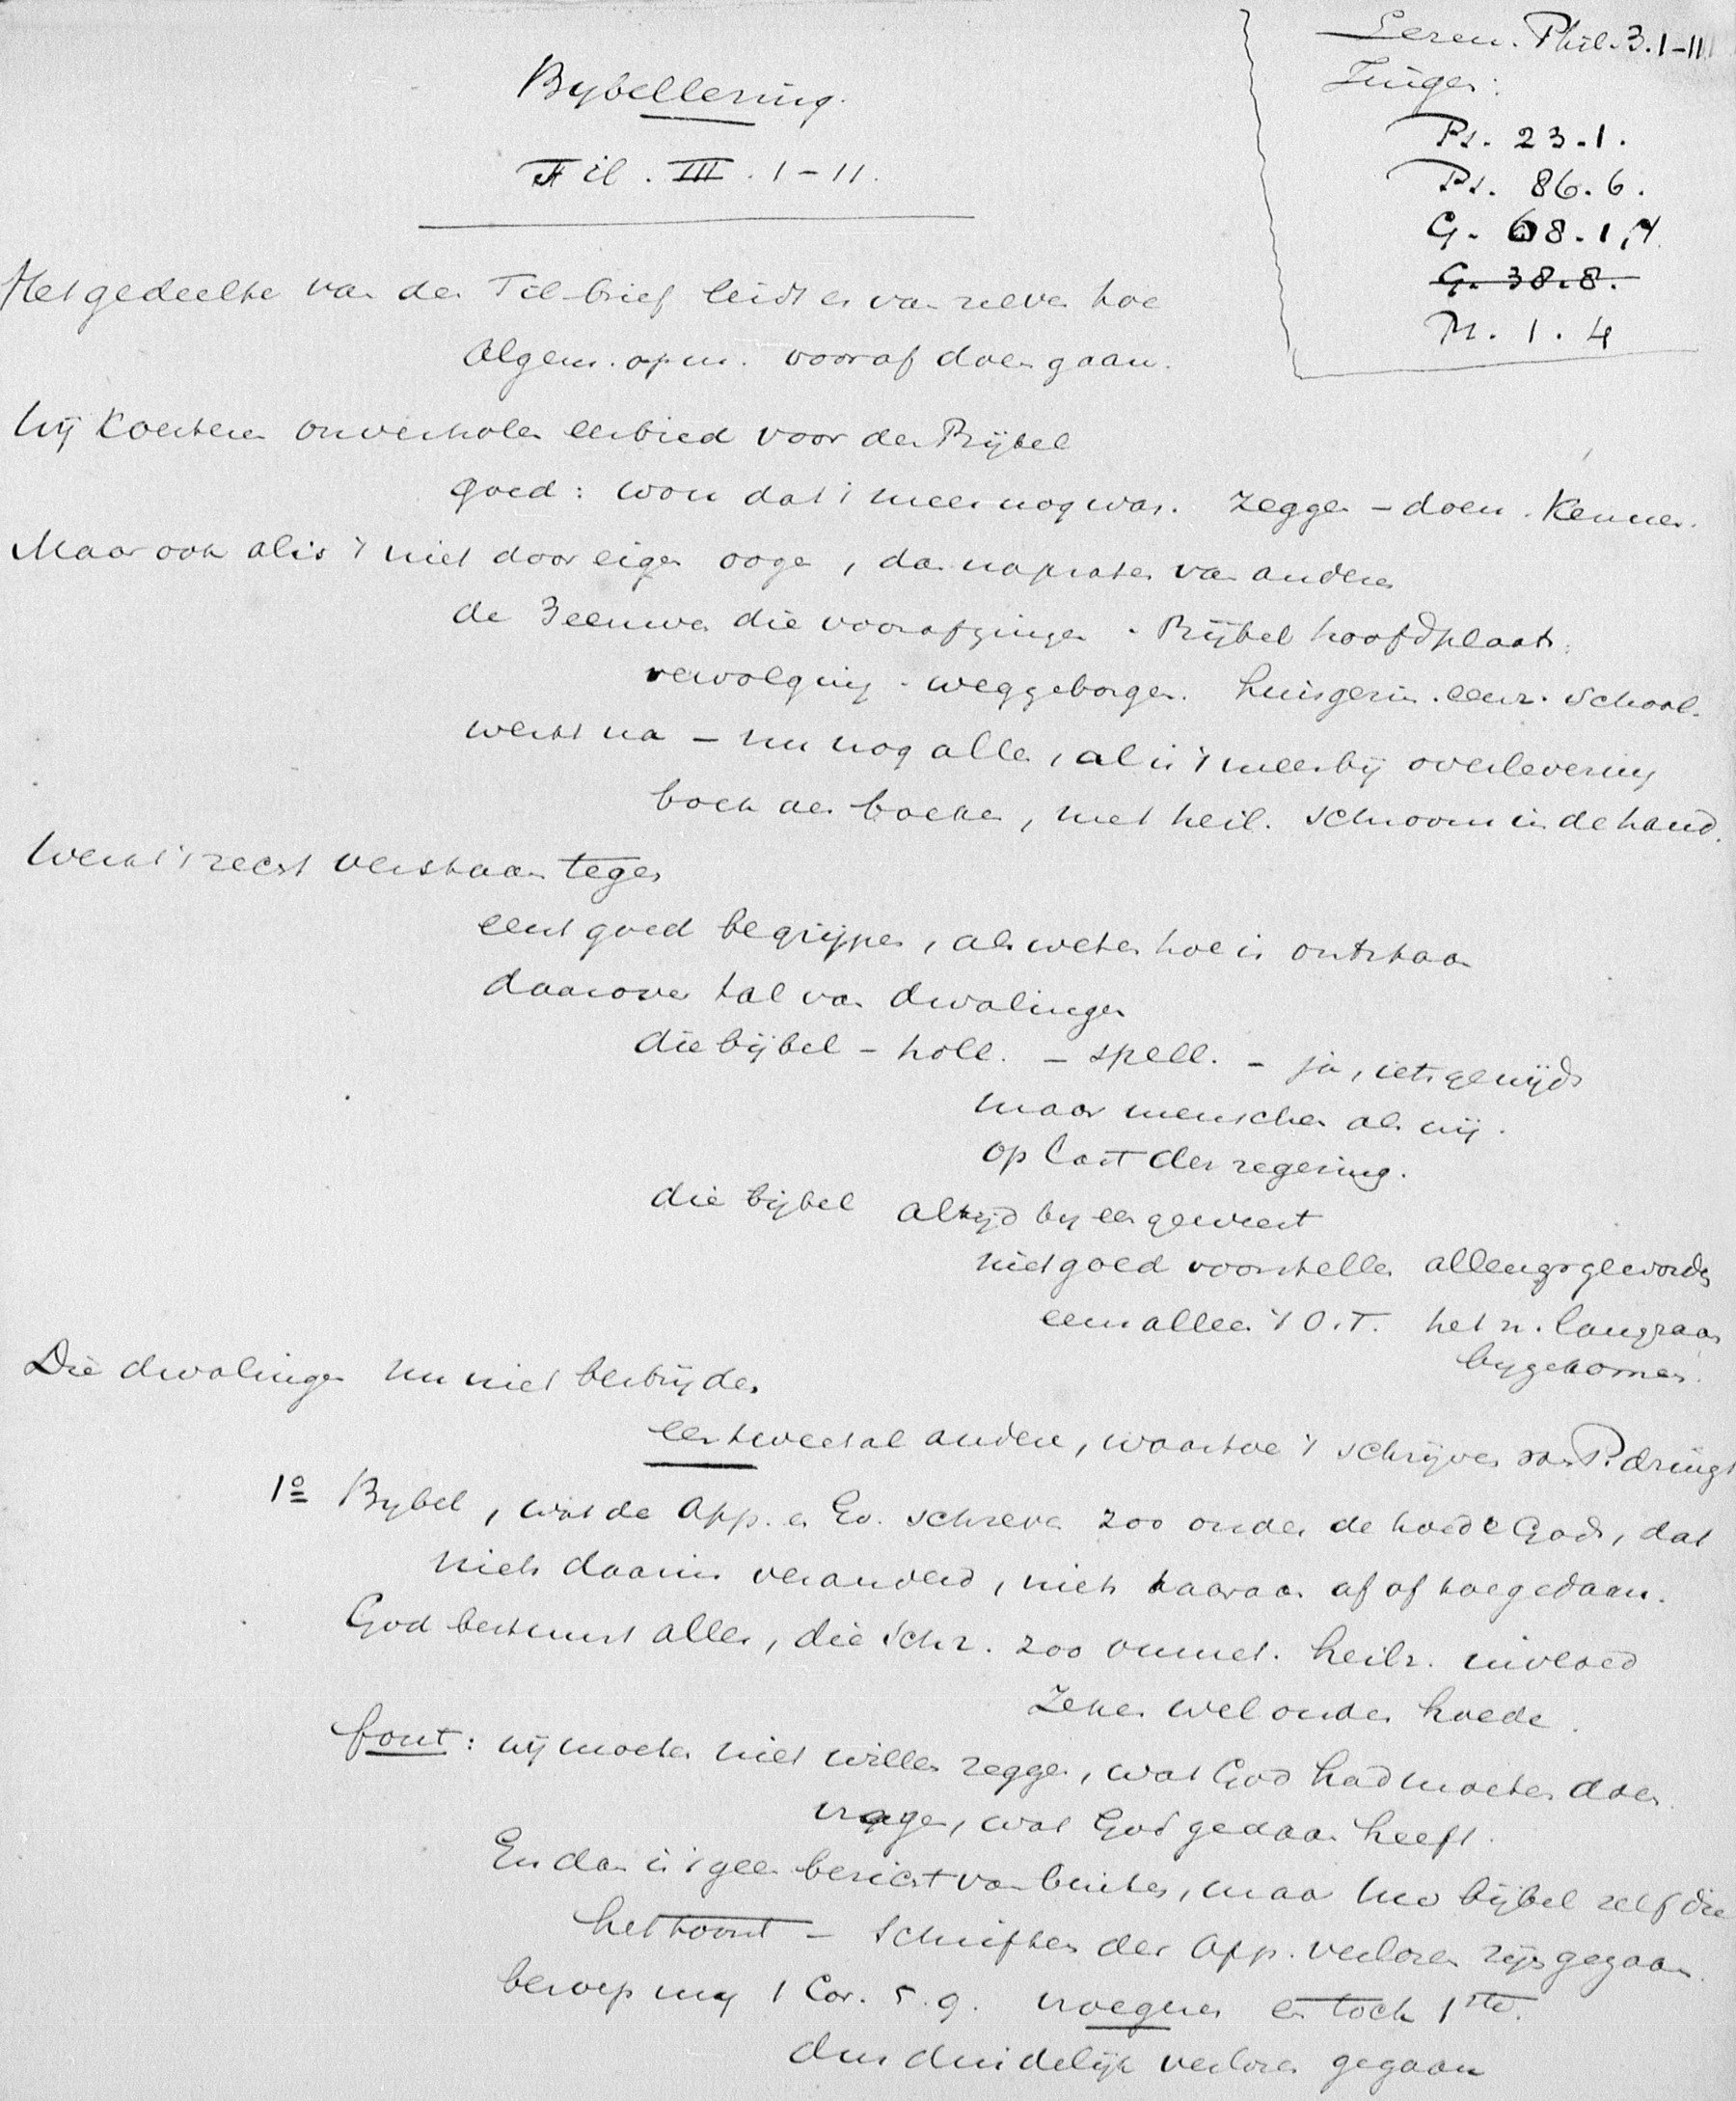 Bybellezing.
Fil. III. 1-11.
Lezen. Phil. 3. 1-11
Zingen:
Ps. 23.1.
Ps. 86.6.
G. 68.1,
G. 38.8.
Ps. 1.4
Het gedeelte van den Fil-brief leidt er van zelven toe
Algem. opm. vooraf doen gaan.
Wij koesteren onverholen eerbied voor den Bijbel
goed: wou dat 't meer nog was. Zeggen - doen. Kennen.
Maar ook al is 't niet door eigen oogen, dan napraten van anderen
de 3 eeuwen die voorafgingen. Bijbel hoofdplaats.
vervolging. weggeborgen. huisgezin. eenz. School.
werkt na - nu nog allen, al is 't meer bij overlevering
boek der boeken, met heil. schroom in de hand.
Werkt 't recht verstaan tegen
eerst goed begrijpen, als weten hoe is ontstaan
daarover tal van dwalingen
die bijbel - holl. - spell. - ja, iets gewijds
maar menschen als wij.
op last der regering.
die bijbel altijd by een geweest
niet goed voorstellen allengs geworden
eerst alleen 't O.T. het n. langzaam
bygekomen.
Die dwalingen nu niet bestrijden
een tweetal andere, waartoe 't schrijven van P. dringt
1o Bybel, wat de App. en Ev. schreven zoo onder de hoede Gods, dat
niets daarin veranderd, niets daaraan af of toegedaan.
God bestuurt alles, die schr. zoo onmid. heilz. invloed
Zeker wel onder hoede.
fout: wij moeten niet willen zeggen, wat God had moeten doen.
vragen, wat God gedaan heeft.
En dan is 't geen bericht van buiten, maar die bijbel zelf die
het toont - Schriften der App. verloren zijn gegaan.
beroep mij 1 Cor. 5.9. vroeger en toch 1ste.
dus duidelijk verloren gegaan